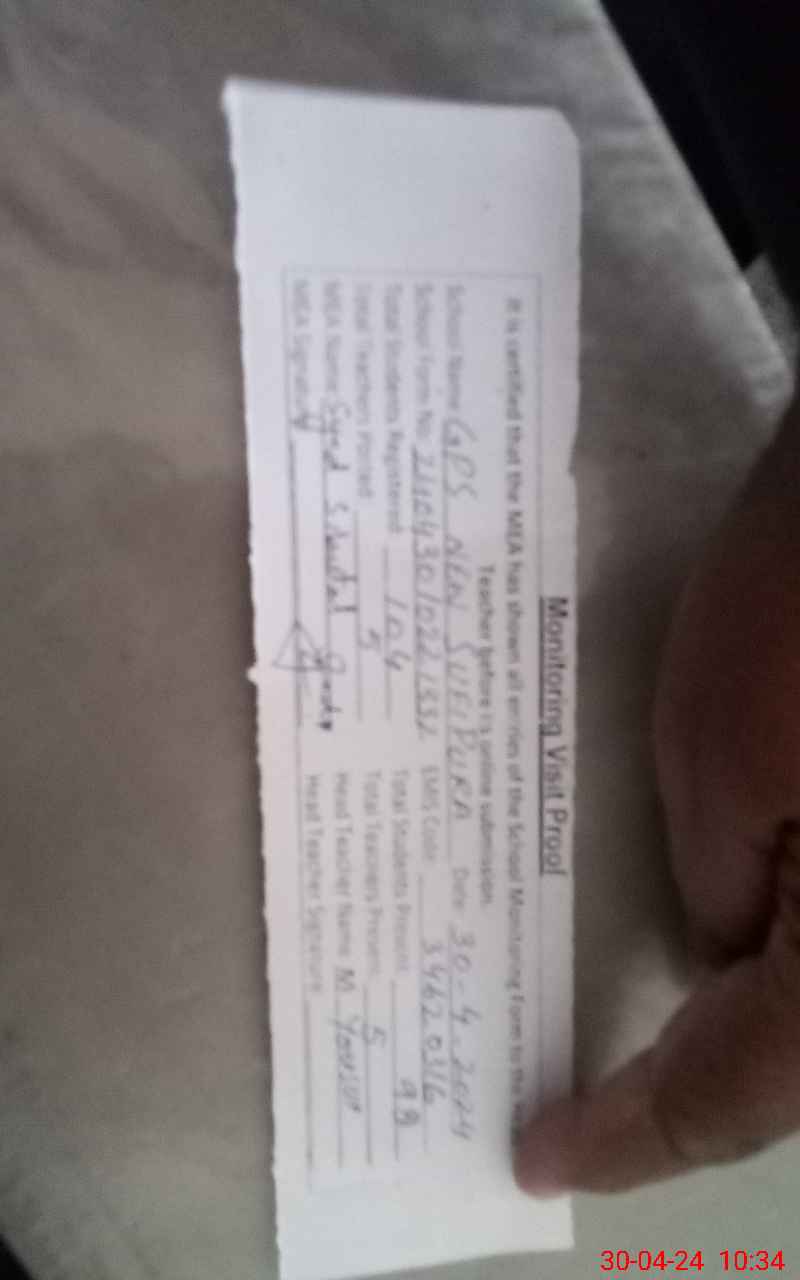 Monitoring Visit Proof
It is certified that the MEA has shown all entries of the School Monitoring Form to the
Teacher before its online submission.
School Name: GPS NEW SUFIPURA Date: 30-4-2024
School Form No: EMIS Code: 34620316
Total Students Registered: 104 Total Students Present: 98
Total Teachers Posted: 5 Total Teachers Present: 5
MEA Name: Syed Head Teacher Name: M.
MEA Signature Head Teacher Signature:
30-04-24 10:34